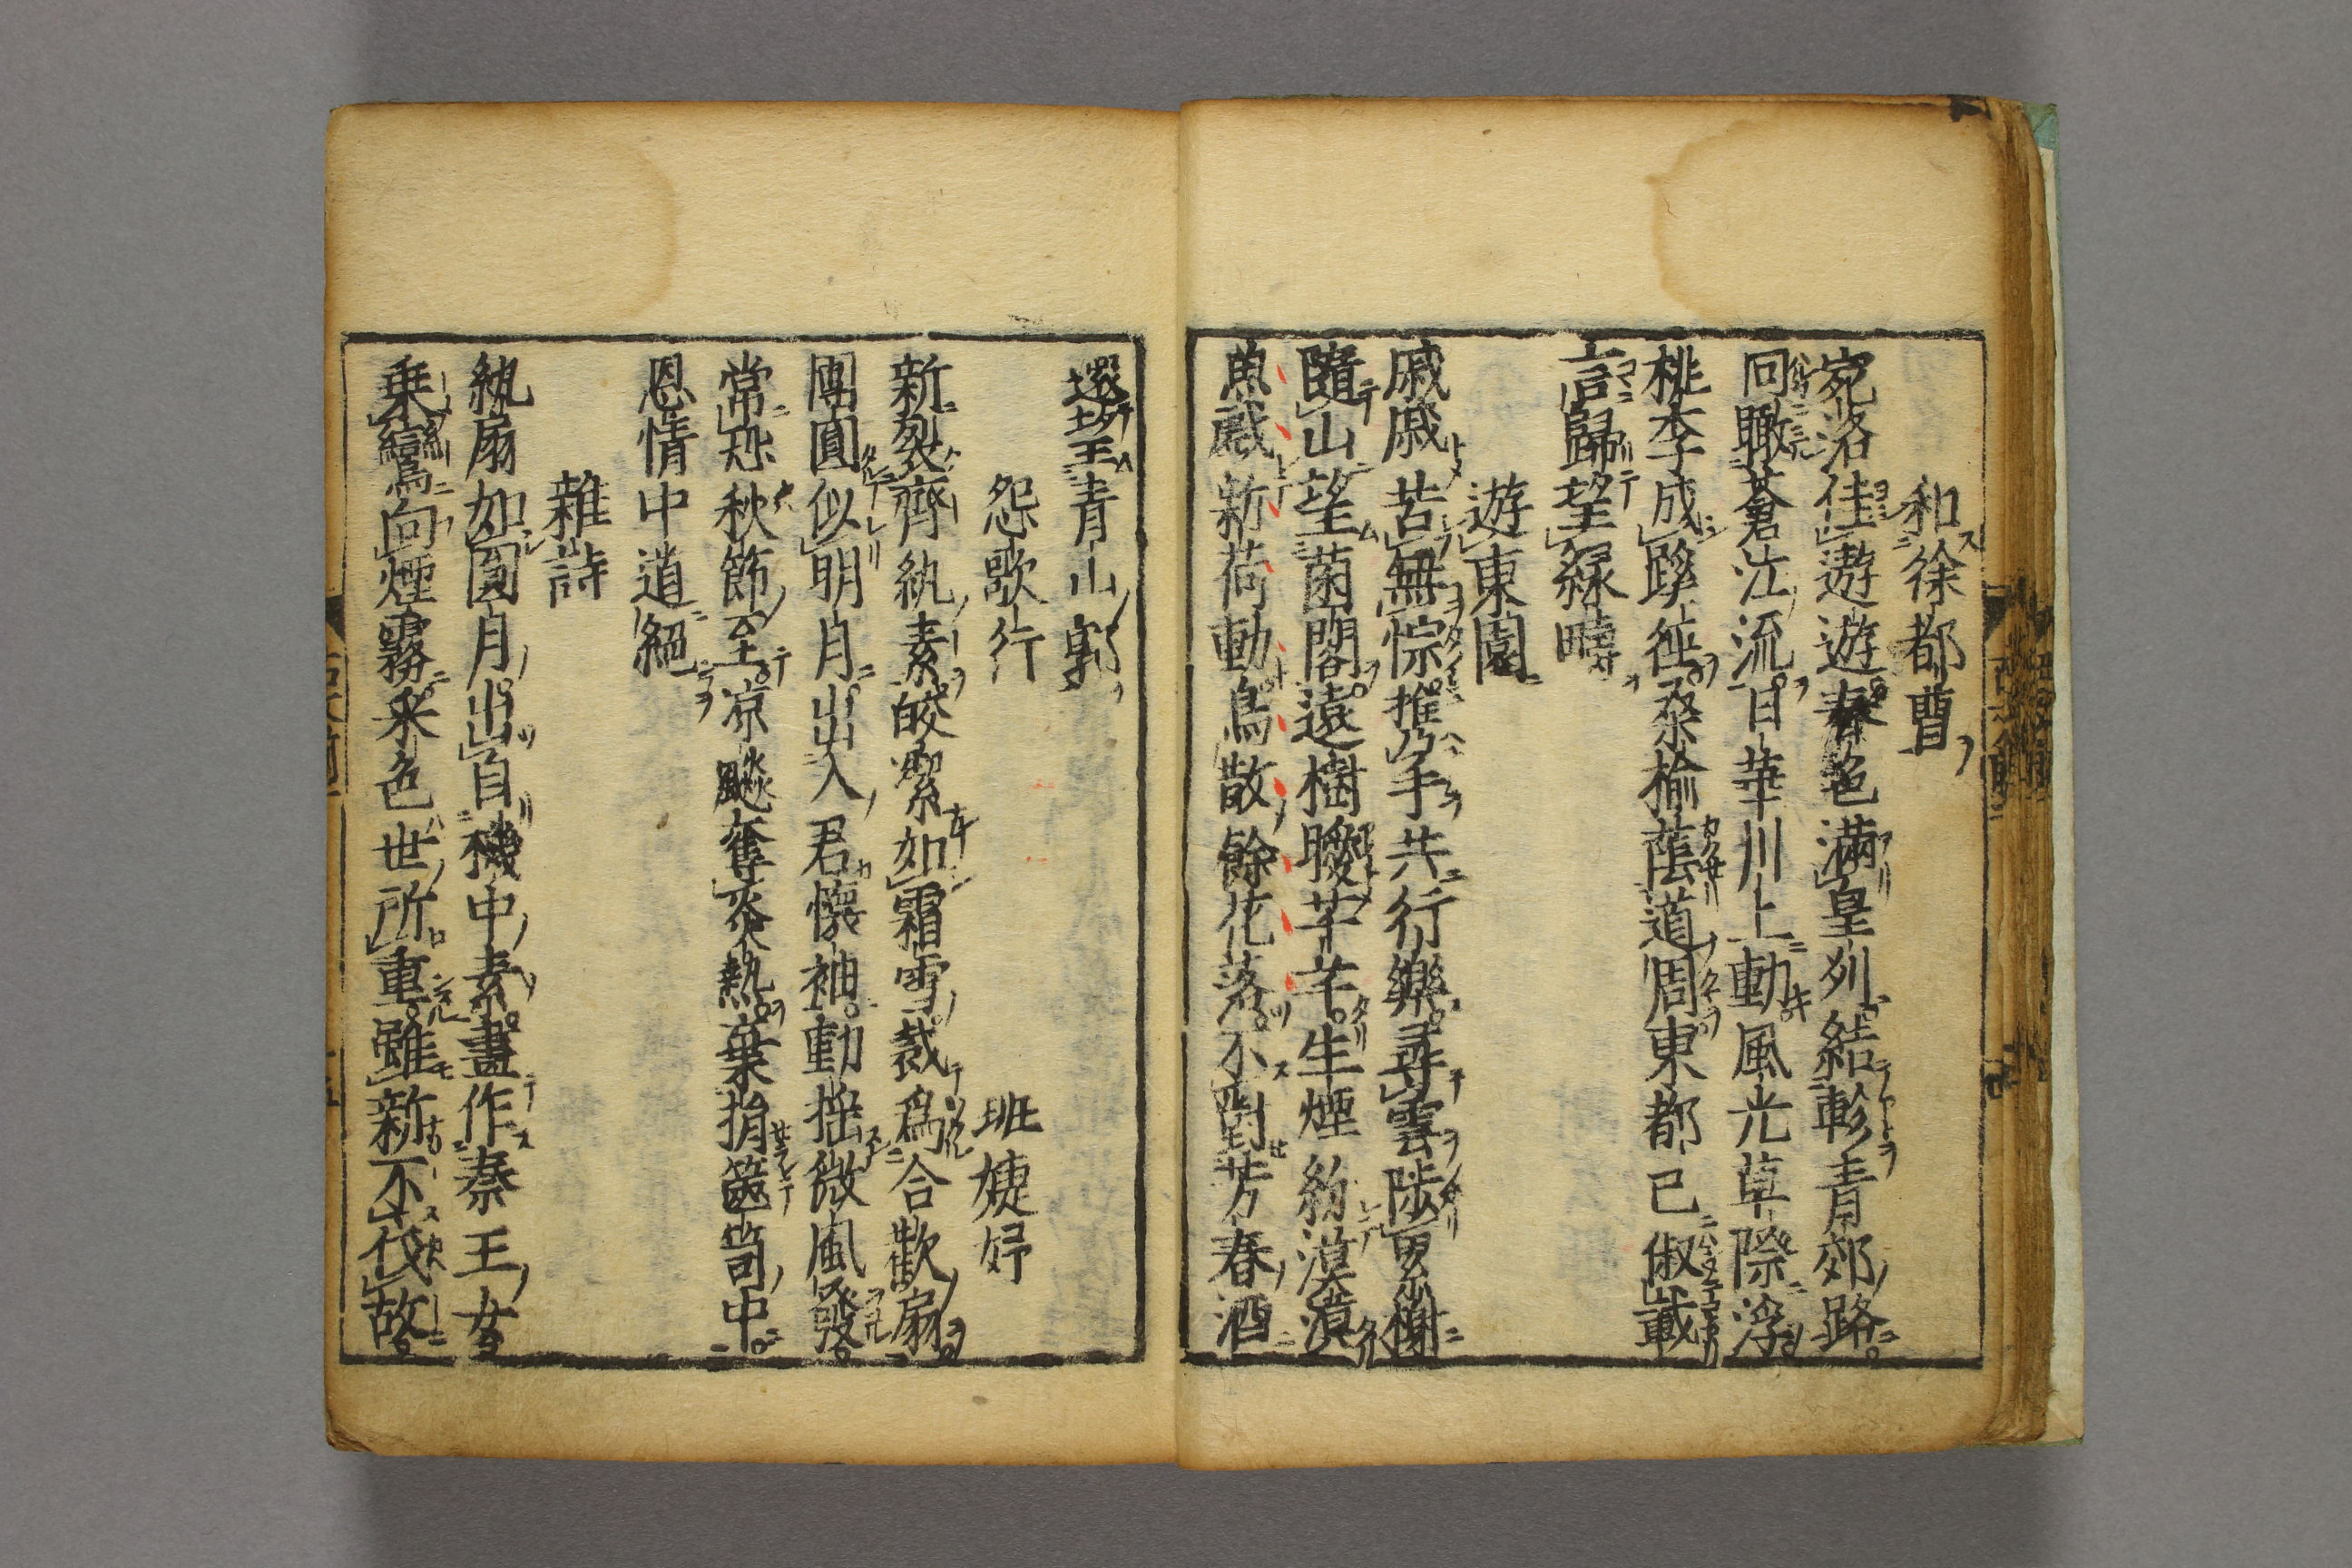 和徐都曹
宛洛佳遨遊春色滿皇列結軫青郊路
囘瞰蒼江流日華川上動風光草際浮
桃李成蹊徑桑榆蔭道周東都已俶載
言歸望綠疇
遊東園
戚戚苦無悰携手共行樂尋雲陟累榭
隨山望菌閣遠樹曖芊芊生煙紛漠漠
魚戲新荷動鳥散餘花落不對芳春酒
還望青山郭
怨歌行 班婕妤
新裂齊紈素皎潔如霜雪裁爲合歡扇
團圓似明月出入君懷袖動揺微風發
常恐秋節至凉飈奪炎熱棄捐篋笥中
恩情中道絕
雜詩
紈扇如圓月出自機中素畫作秦王女
乗鸞向煙霧采色世所重雖新不代故